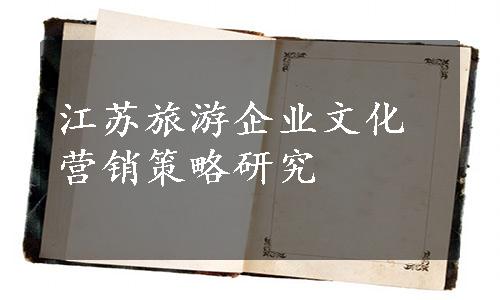 江苏旅游企业文化
营销策略研究